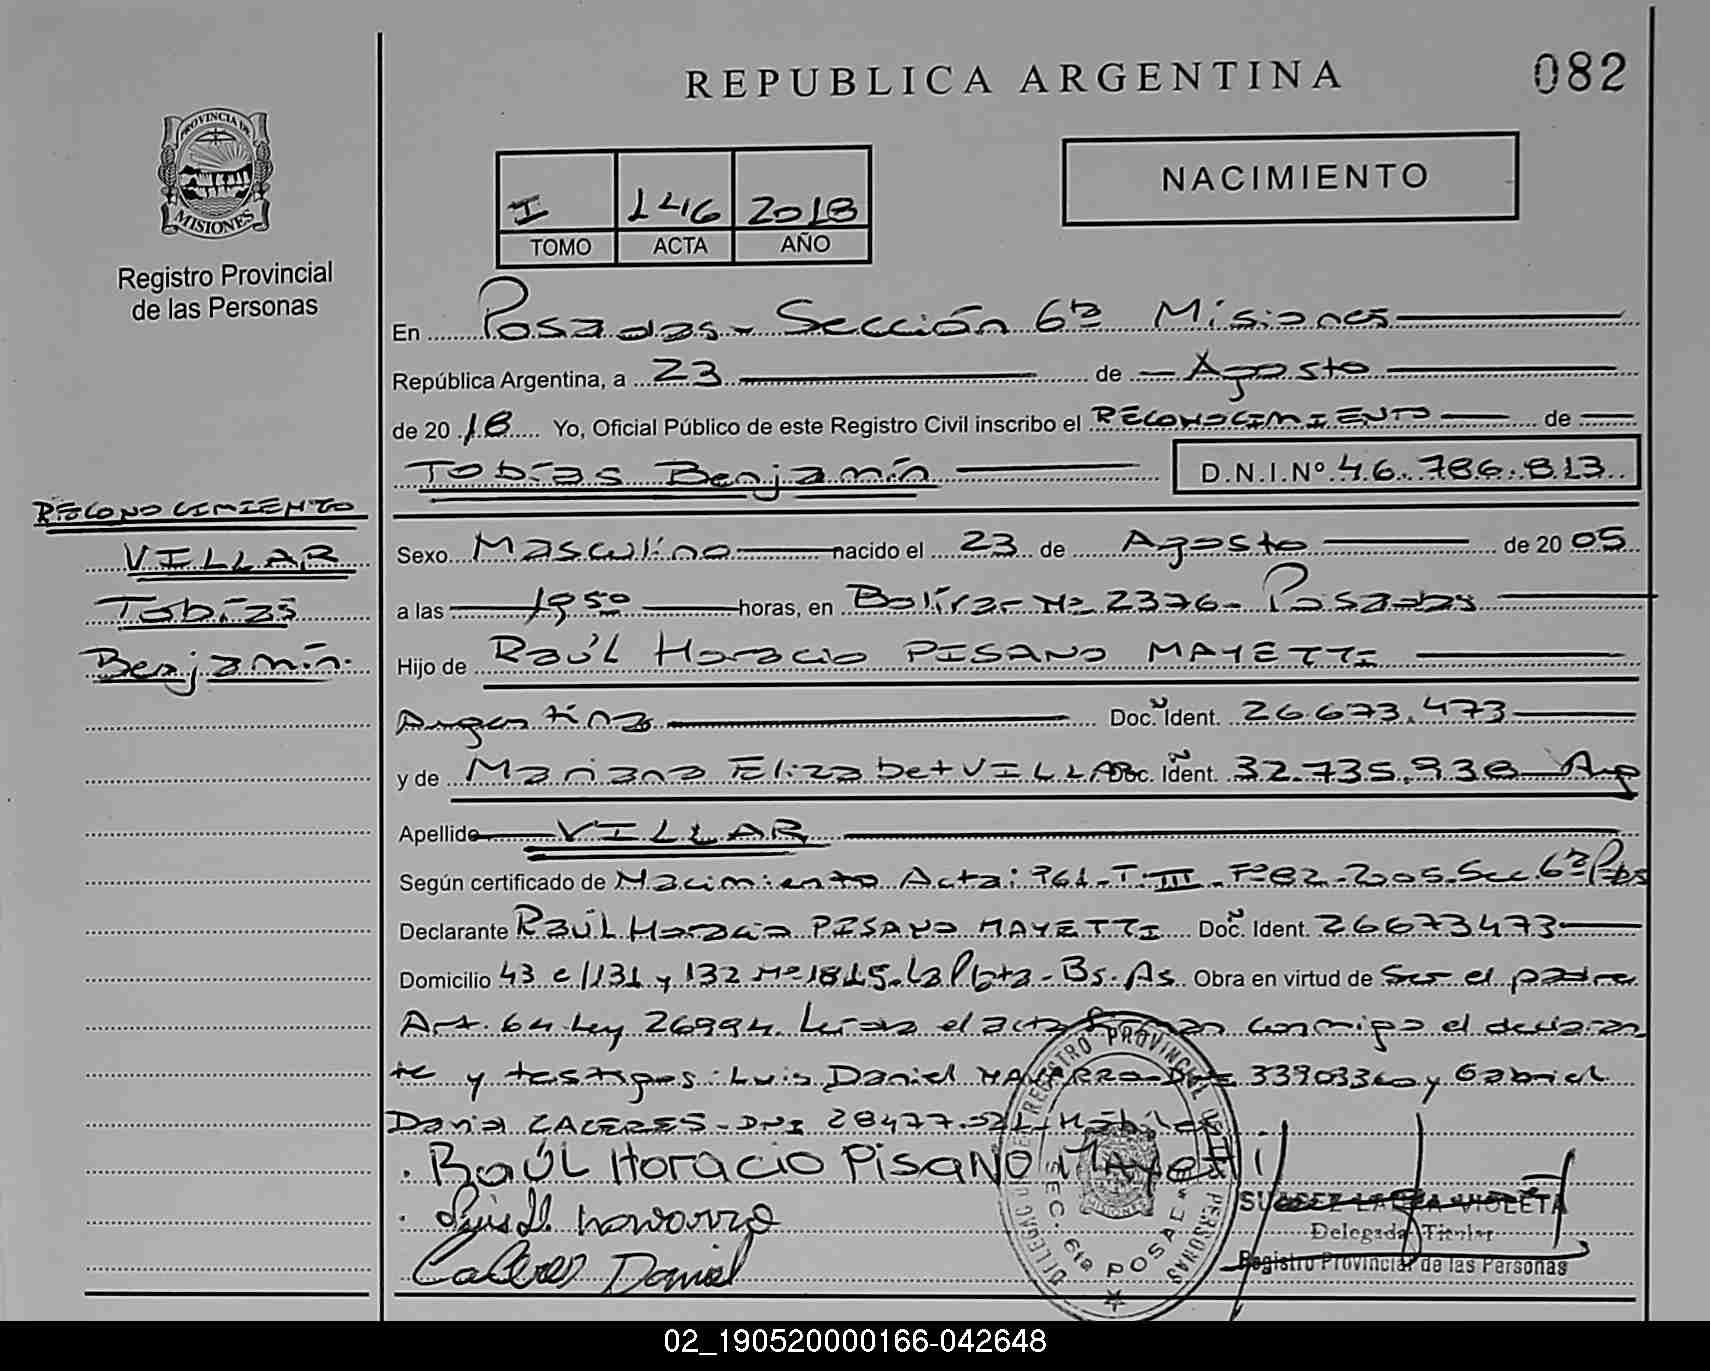 REPUBLICA ARGENTINA
082
PROVINCIA DE
MISIONES
Registro Provincial
de las Personas
NACIMIENTO
I 146 2018
TOMO ACTA AÑO
En Posadas - Sección 6ª Misiones
República Argentina, a 23 de Agosto
de 2018 Yo, Oficial Público de este Registro Civil inscribo el RECONOCIMIENTO de
Tobías Benjamín D.N.I.Nº 46.786.813
RECONOCIMIENTO
VILLAR
Tobías
Benjamín
Sexo Masculino nacido el 23 de Agosto de 2005
a las 19,50 horas, en Bolívar Nº 2376 - Posadas
Hijo de Raúl Horacio PISANO MAYETTI
Argentina Doc. Ident. 26.673.473
y de Mariana Elizabet VILLAR Doc. Ident. 32.735.938 Arg
Apellido VILLAR
Según certificado de Nacimiento Acta: 961-T-III-Fº82-2005-Sec 6ª Pdas
Declarante Raúl Horacio PISANO MAYETTI Doc. Ident. 26673473
Domicilio 43 e/131 y 132 Nº 1815-La Plata-Bs.As. Obra en virtud de Ser el padre
Art. 64 Ley 26994. Leída el acta firman conmigo el declaran
te y testigos: Luis Daniel NAVARRO 33903360 y Gabriel
Daniel CACERES - DNI 28477.521-Hábiles
Raúl Horacio Pisano Mayetti
Luis D. Navarro
Caceres Daniel
REGISTRO PROVINCIAL DE LAS PERSONAS
SEC. 6ta POSADAS
VIOLETA
Delegada Titular
Registro Provincial de las Personas
02_190520000166-042648